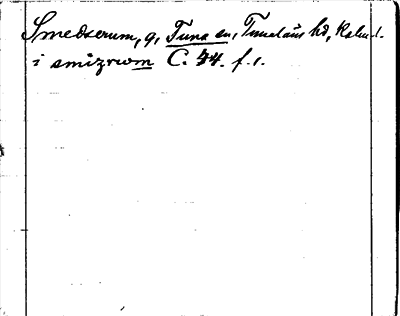 Smedserum, g, Tuna sn, Tunaläns hd, Kalm. l.
i smizrwm C. 44. f. 1.